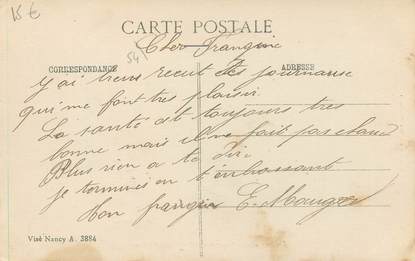 15 €
CARTE POSTALE
54
Cher Frangine
CORRESPONDANCE
ADRESSE
j'ai recut tes journause
qui me font tres plaisir
La santé est toujours tres
bonne mais il ne fait pas chaud
Plus rien a te dire
je termines en t'enbrassant
Ton frangin E. Mauger
Visé Nancy A. 3884